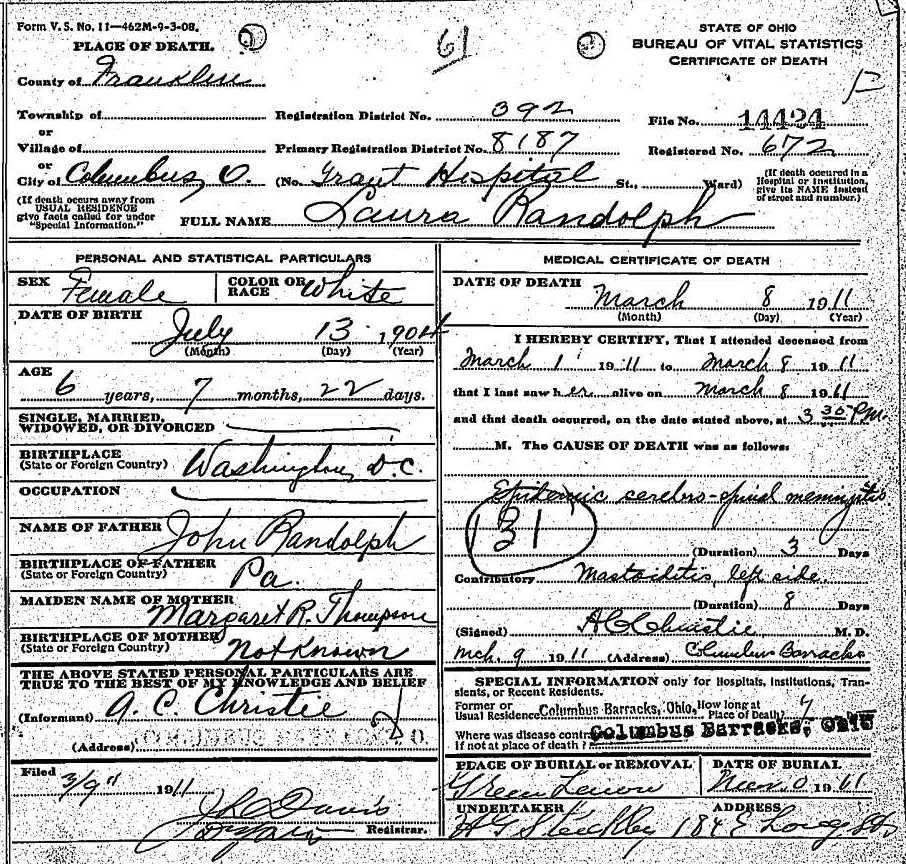 Form V. S. No. 11—462M-9-3-08.
61
PLACE OF DEATH.
STATE OF OHIO
BUREAU OF VITAL STATISTICS
CERTIFICATE OF DEATH
County of Franklin
Township of
Registration District No. 392
File No. 14424
or
Village of
Primary Registration District No. 8187
Registered No. 672
or
City of Columbus, O.
(No. Grant Hospital St., Ward)
(If death occured in a Hospital or institution, give its NAME instead of street and number.)
(If death occurs away from USUAL RESIDENCE give facts called for under "Special Information.")
FULL NAME Laura Randolph
PERSONAL AND STATISTICAL PARTICULARS
SEX Female
COLOR OR RACE White
DATE OF BIRTH
July 13 1904
(Month) (Day) (Year)
AGE
6 years, 7 months, 22 days.
SINGLE, MARRIED,
WIDOWED, OR DIVORCED
BIRTHPLACE
(State or Foreign Country) Washington, D.C.
OCCUPATION
NAME OF FATHER John Randolph
BIRTHPLACE OF FATHER
(State or Foreign Country) Pa.
MAIDEN NAME OF MOTHER Margaret R. Thompson
BIRTHPLACE OF MOTHER
(State or Foreign Country) Not Known
THE ABOVE STATED PERSONAL PARTICULARS ARE
TRUE TO THE BEST OF MY KNOWLEDGE AND BELIEF
(Informant) A. C. Christie
(Address)
Filed
3/9 1911
J C Davis
Registrar.
MEDICAL CERTIFICATE OF DEATH
DATE OF DEATH
March 8 1911
(Month) (Day) (Year)
I HEREBY CERTIFY, That I attended deceased from
March 1 1911 to March 8 1911
that I last saw her alive on March 8 1911
and that death occurred, on the date stated above, at 3 30 P.M.
M. The CAUSE OF DEATH was as follows:
Epidemic cerebro-spinal meningitis
131
(Duration) 3 Days
Contributory Mastoiditis, left side
(Duration) 8 Days
(Signed) A C Christie M. D.
Mch. 9 1911 (Address) Columbus Barracks
SPECIAL INFORMATION only for Hospitals, Institutions, Transients, or Recent Residents.
Former or Usual Residence Columbus Barracks, Ohio, How long at Place of Death? 7
Where was disease contra
If not at place of death? Columbus Barracks, Ohio
PLACE OF BURIAL or REMOVAL
Green Lawn
DATE OF BURIAL
1911
UNDERTAKER
ADDRESS
184 E Long St